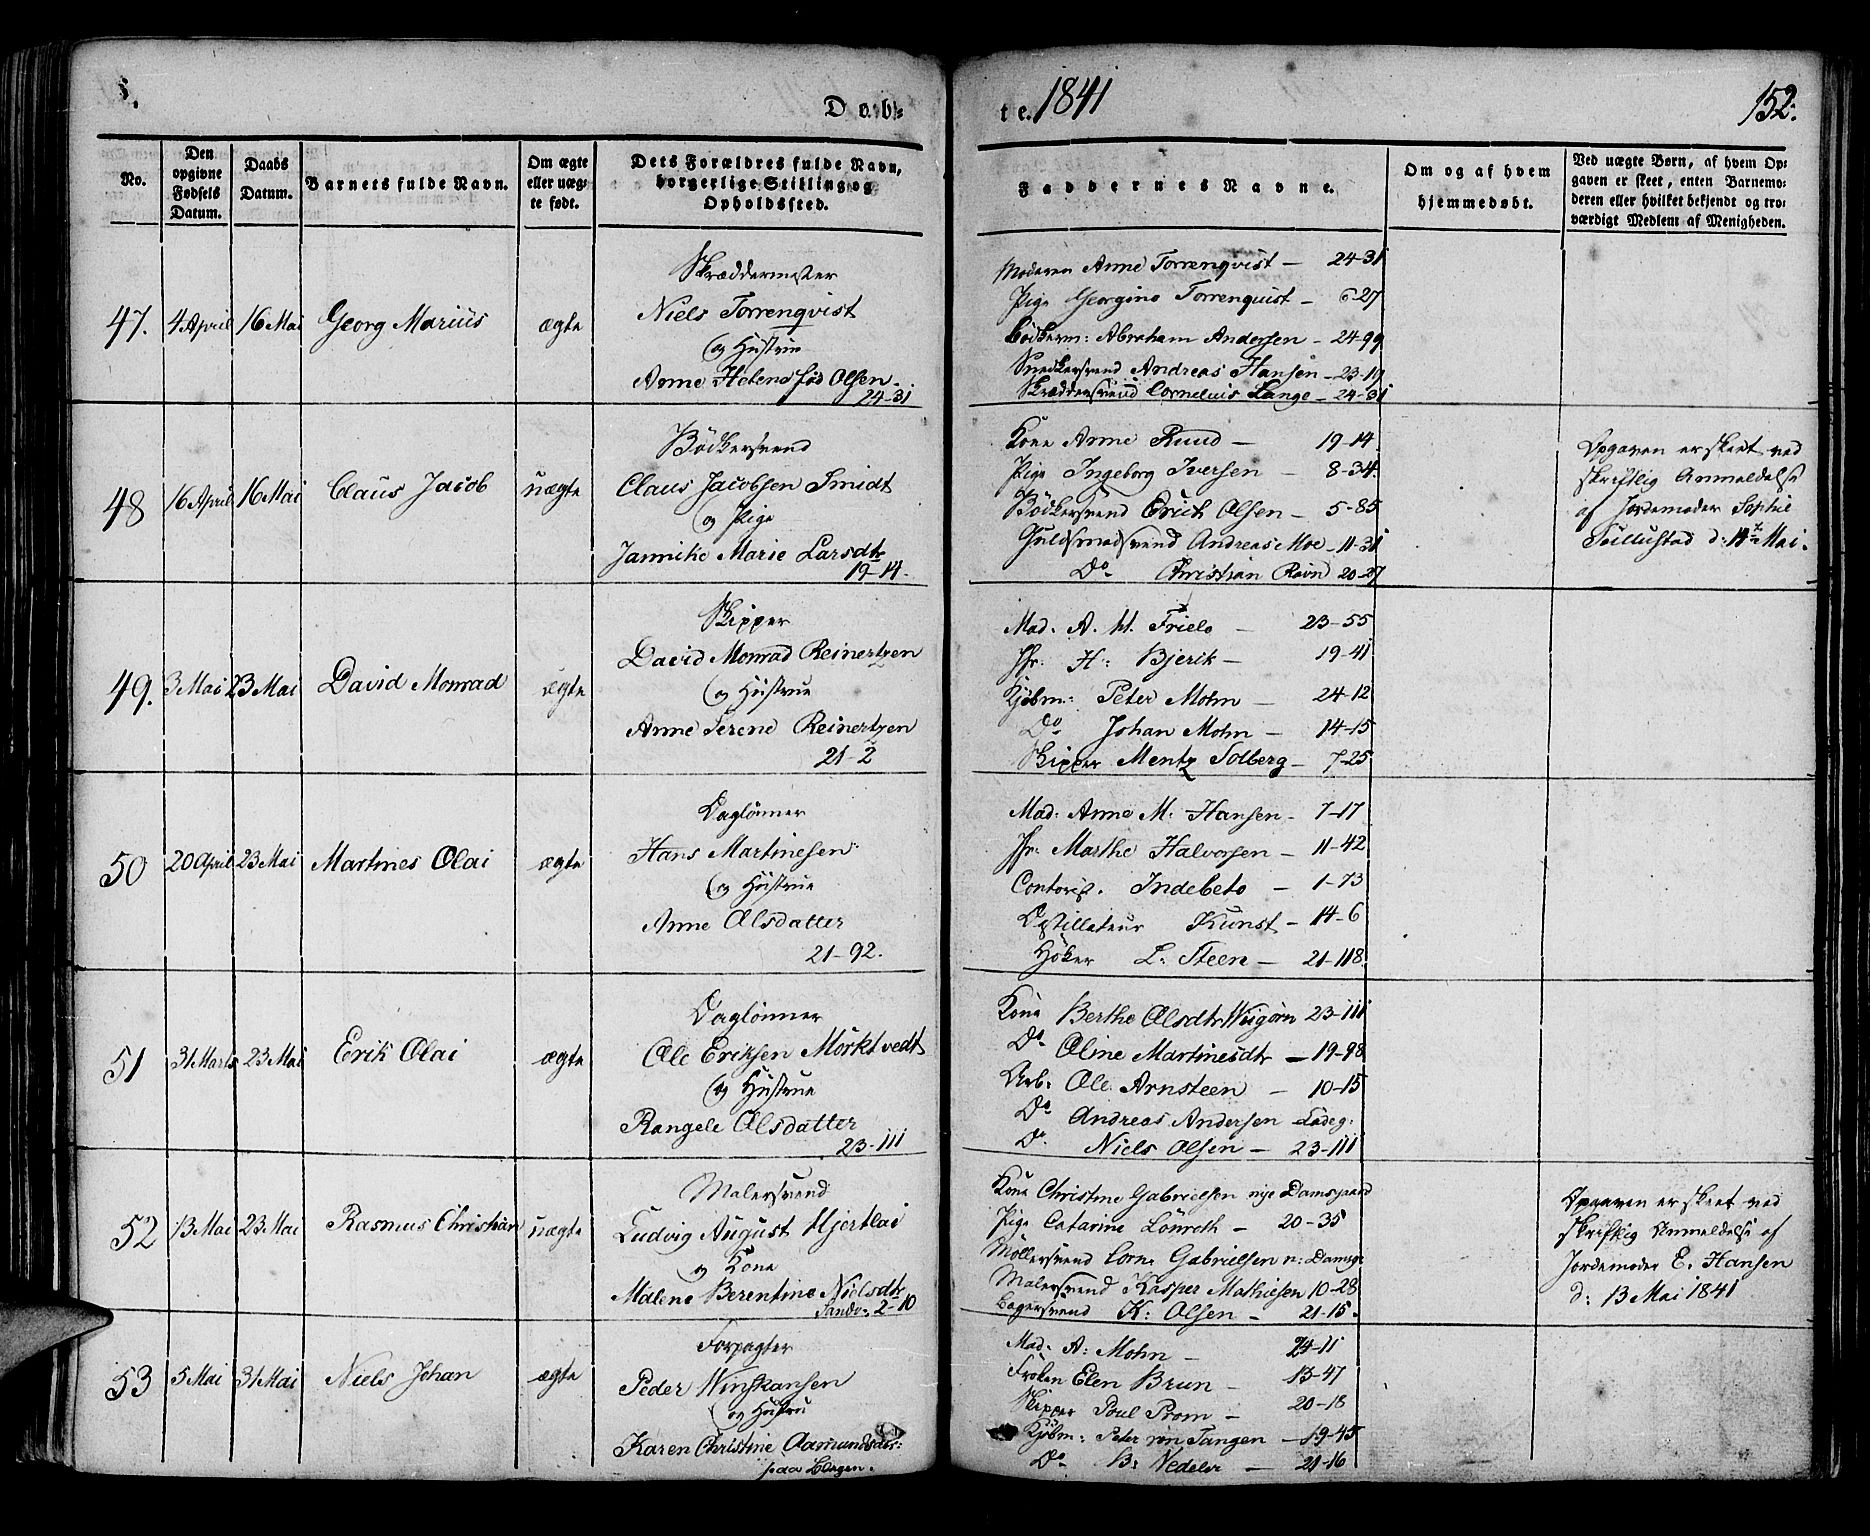 Døb-
te. 1841
152.
No.
Den opgivne Fødsels Datum.
Daabs Datum.
Barnets fulde Navn.
Om ægte eller uægte født.
Dets Forældres fulde Navn, borgerlige Stilling og Opholdssted.
Faddernes Navne.
Om og af hvem hjemmedøbt.
Ved uægte Børn, af hvem Opgaven er skeet, enten Barnemoderen eller hvilket bekjendt og troværdigt Medlem af Menigheden.
47. 4 April 16 Mai Georg Marius ægte
Skræddermester
Niels Torrenqvist
og Hustrue
Anne Helene fød Olsen.
24-31
Moderen Anne Torrenqvist — 24-31
Pige Georgine Torrenquist — 6-27
Bødkerm: Abraham Andersen — 24-99
Snedkersvend Andreas Hansen — 23-19
Skræddersvend Cornelius Lange — 24-31
48 16 April 16 Mai Claus Jacob uægte
Bødkersvend
Claus Jacobsen Smidt
og Pige
Jannike Marie Larsdtr
19-14.
Kone Anne Ruud — 19-14.
Pige Ingeborg Iversen — 8-34.
Bødkersvend Erich Olsen — 5-85
Guldsmedsvend Andreas Moe — 11-31
Do Christian Ravn 20-27
Opgaven er skeet ved
skriftlig Anmeldelse
af Jordemoder Sophie
d: 14de Mai.
49. 3 Mai 23 Mai David Monrad ægte
Skipper
David Monrad Reinertzen
og Hustrue
Anne Serene Reinertzen
21-2
Mad. A. M. Friele — 23-55
Jfr: H: Bjerik — 19-41
Kjøbm: Peter Mohn — 24-12
Do Johan Mohn — 14-15
Skipper Mentz Solberg — 7-25
50 20 April 23 Mai Martines Olai ægte
Daglønner
Hans Martinesen
og Hustrue
Anne Olsdatter
21-92.
Mad: Anne M. Hansen — 7-17
Jfr: Marthe Halvorsen — 11-42
Contoris. Indebeto — 1-73
Destillateur Kunst — 14-6
Høker L: Steen — 21-118.
51 31 Marts 23 Mai Erik Olai ægte
Daglønner
Ole Eriksen Mørktvedt
og Hustrue
Rangele Olsdatter
23-111
Kone Berthe Olsdtr Wiigørn 23-111
Do Oline Martinesdtr — 19-98
Arb. Ole Arnsteen — 10-15
Do Andreas Andersen Ladeg.
Do Niels Olsen — 23-111
52 13 Mai 23 Mai Rasmus Christian uægte
Malersvend
Ludvig August Hjertlai
og Kone
Malene Berentine Nielsdtr
Sandv. 2-10
Kone Christine Gabrielsen nye Damsgaard
Pige Catarine Lönroth — 20-35
Møllersvend Corn: Gabrielsen n: Damsg.
Malersvend Kasper Mathiesen 10-28
Bagersvend K: Olsen — 21-15.
Opgaven er skeet ved
skriftlig Anmeldelse af
Jordemoder E. Hansen
d: 13 Mai 1841
53 5 Mai 31 Mai Niels Johan ægte
Forpagter
Peder
og Hustru
Karen Christine Aamundsdtr:
paa
Mad. A: Mohn — 24-11
Frøken Elen Brun — 15-47
Skipper Poul Prom — 20-18
Kjøbm: Peter von Tangen — 19-45
Do B: Nedeler — 21-16